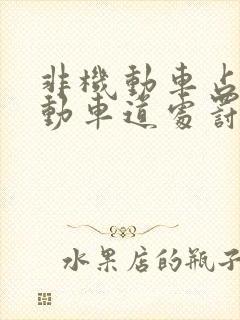 非機動車占
動車道處罰
水果店的瓶子